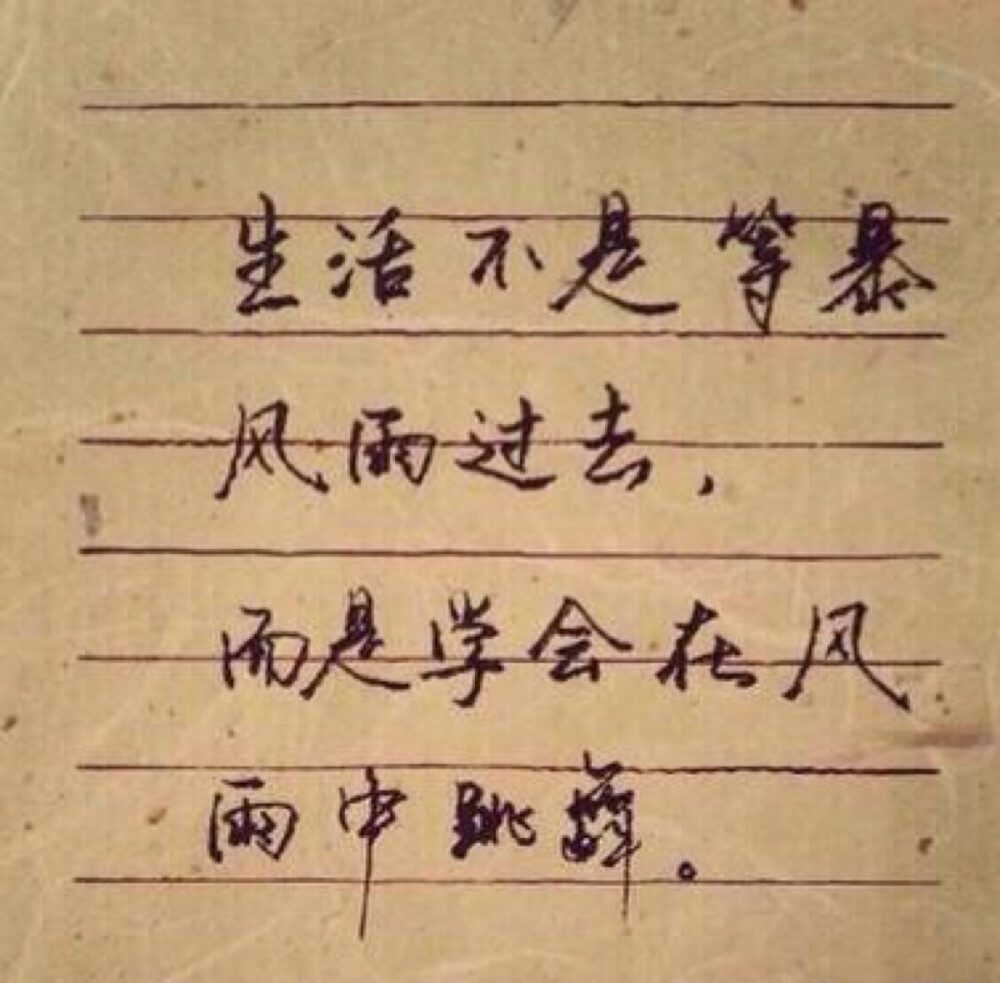 生活不是等暴
风雨过去，
而是学会在风
雨中跳舞。